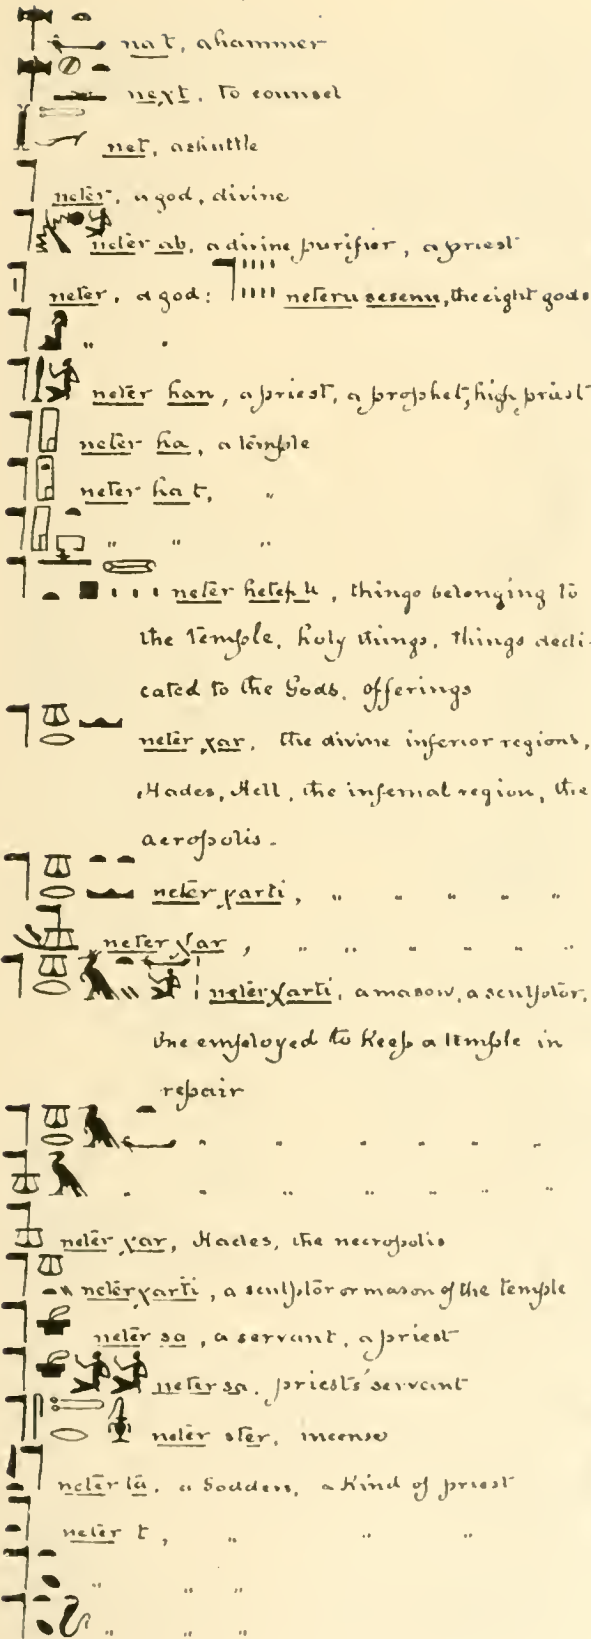 na t, a hammer
neχt, to counsel
net, a shuttle
neter, a god, divine
neter ab, a divine purifier, a priest
neter, a god: neteru sesenu, the eight gods
" "
neter han, a priest, a prophet, high priest
neter ha, a temple
neter ha t, "
" " "
neter hetep u, things belonging to
the Temple, holy things, things dedi-
cated to the Gods, offerings
neter χar, the divine inferior regions,
Hades, Hell, the infernal region, the
aeropolis.
neter χarti, " " " " "
neter χar, " " " " " "
neter χarti, a mason, a sculptor,
one employed to keep a temple in
repair
" " " " " "
" " " " " " "
neter χar, Hades, the necropolis
neter χarti, a sculptor or mason of the temple
neter sa, a servant, a priest
neter sa, priests' servant
neter ster, incense
neter ta, a Goddess, a kind of priest
neter t, " " "
" " "
" " "